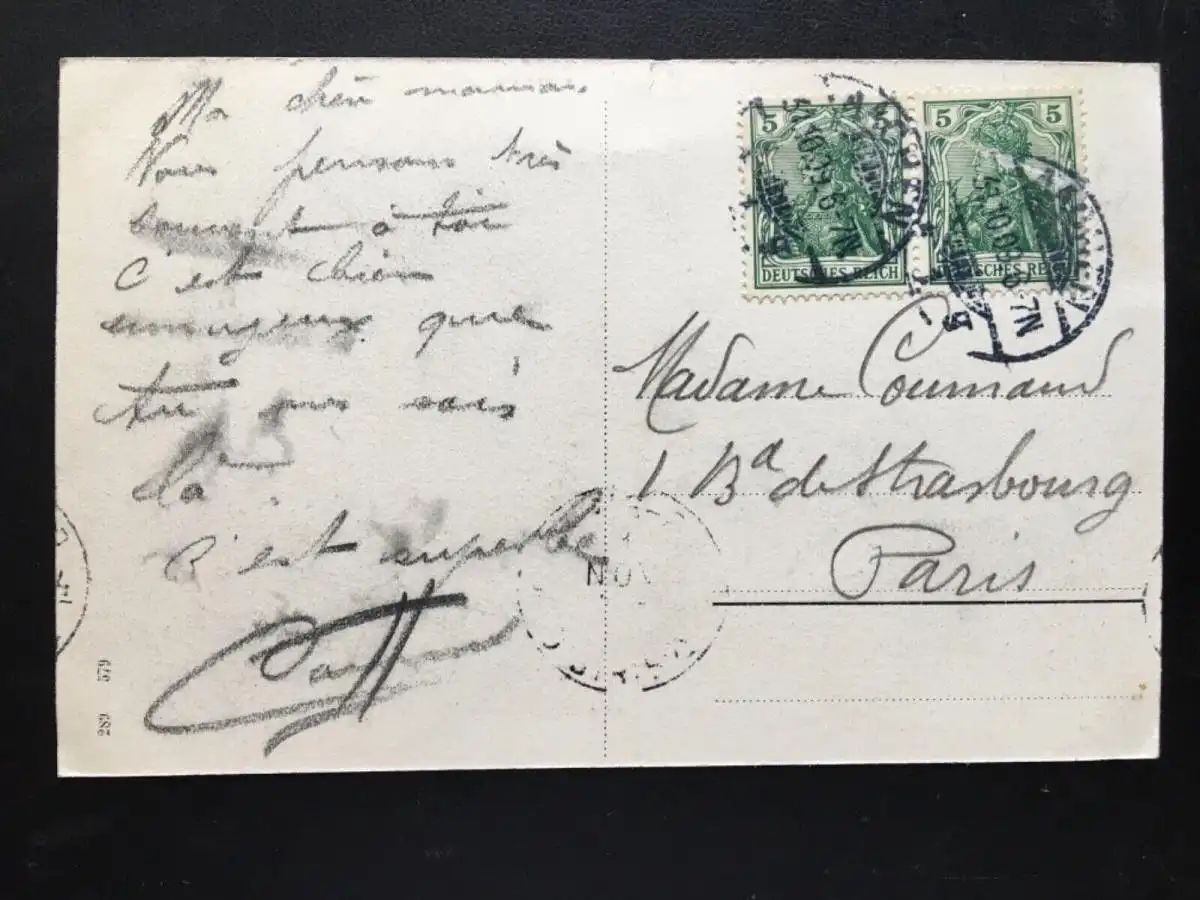 Ma chère maman
Nous pensons très
souvent à toi
c'est bien
ennuyeux que
tu ne sois
là
C'est superbe
5 5
5
DEUTSCHES REICH
DEUTSCHES REICH
AACHEN
5.10.09.6-7N
AACHEN
Madame Coumand
1 Bd de Strasbourg
Paris
NOV
289 579